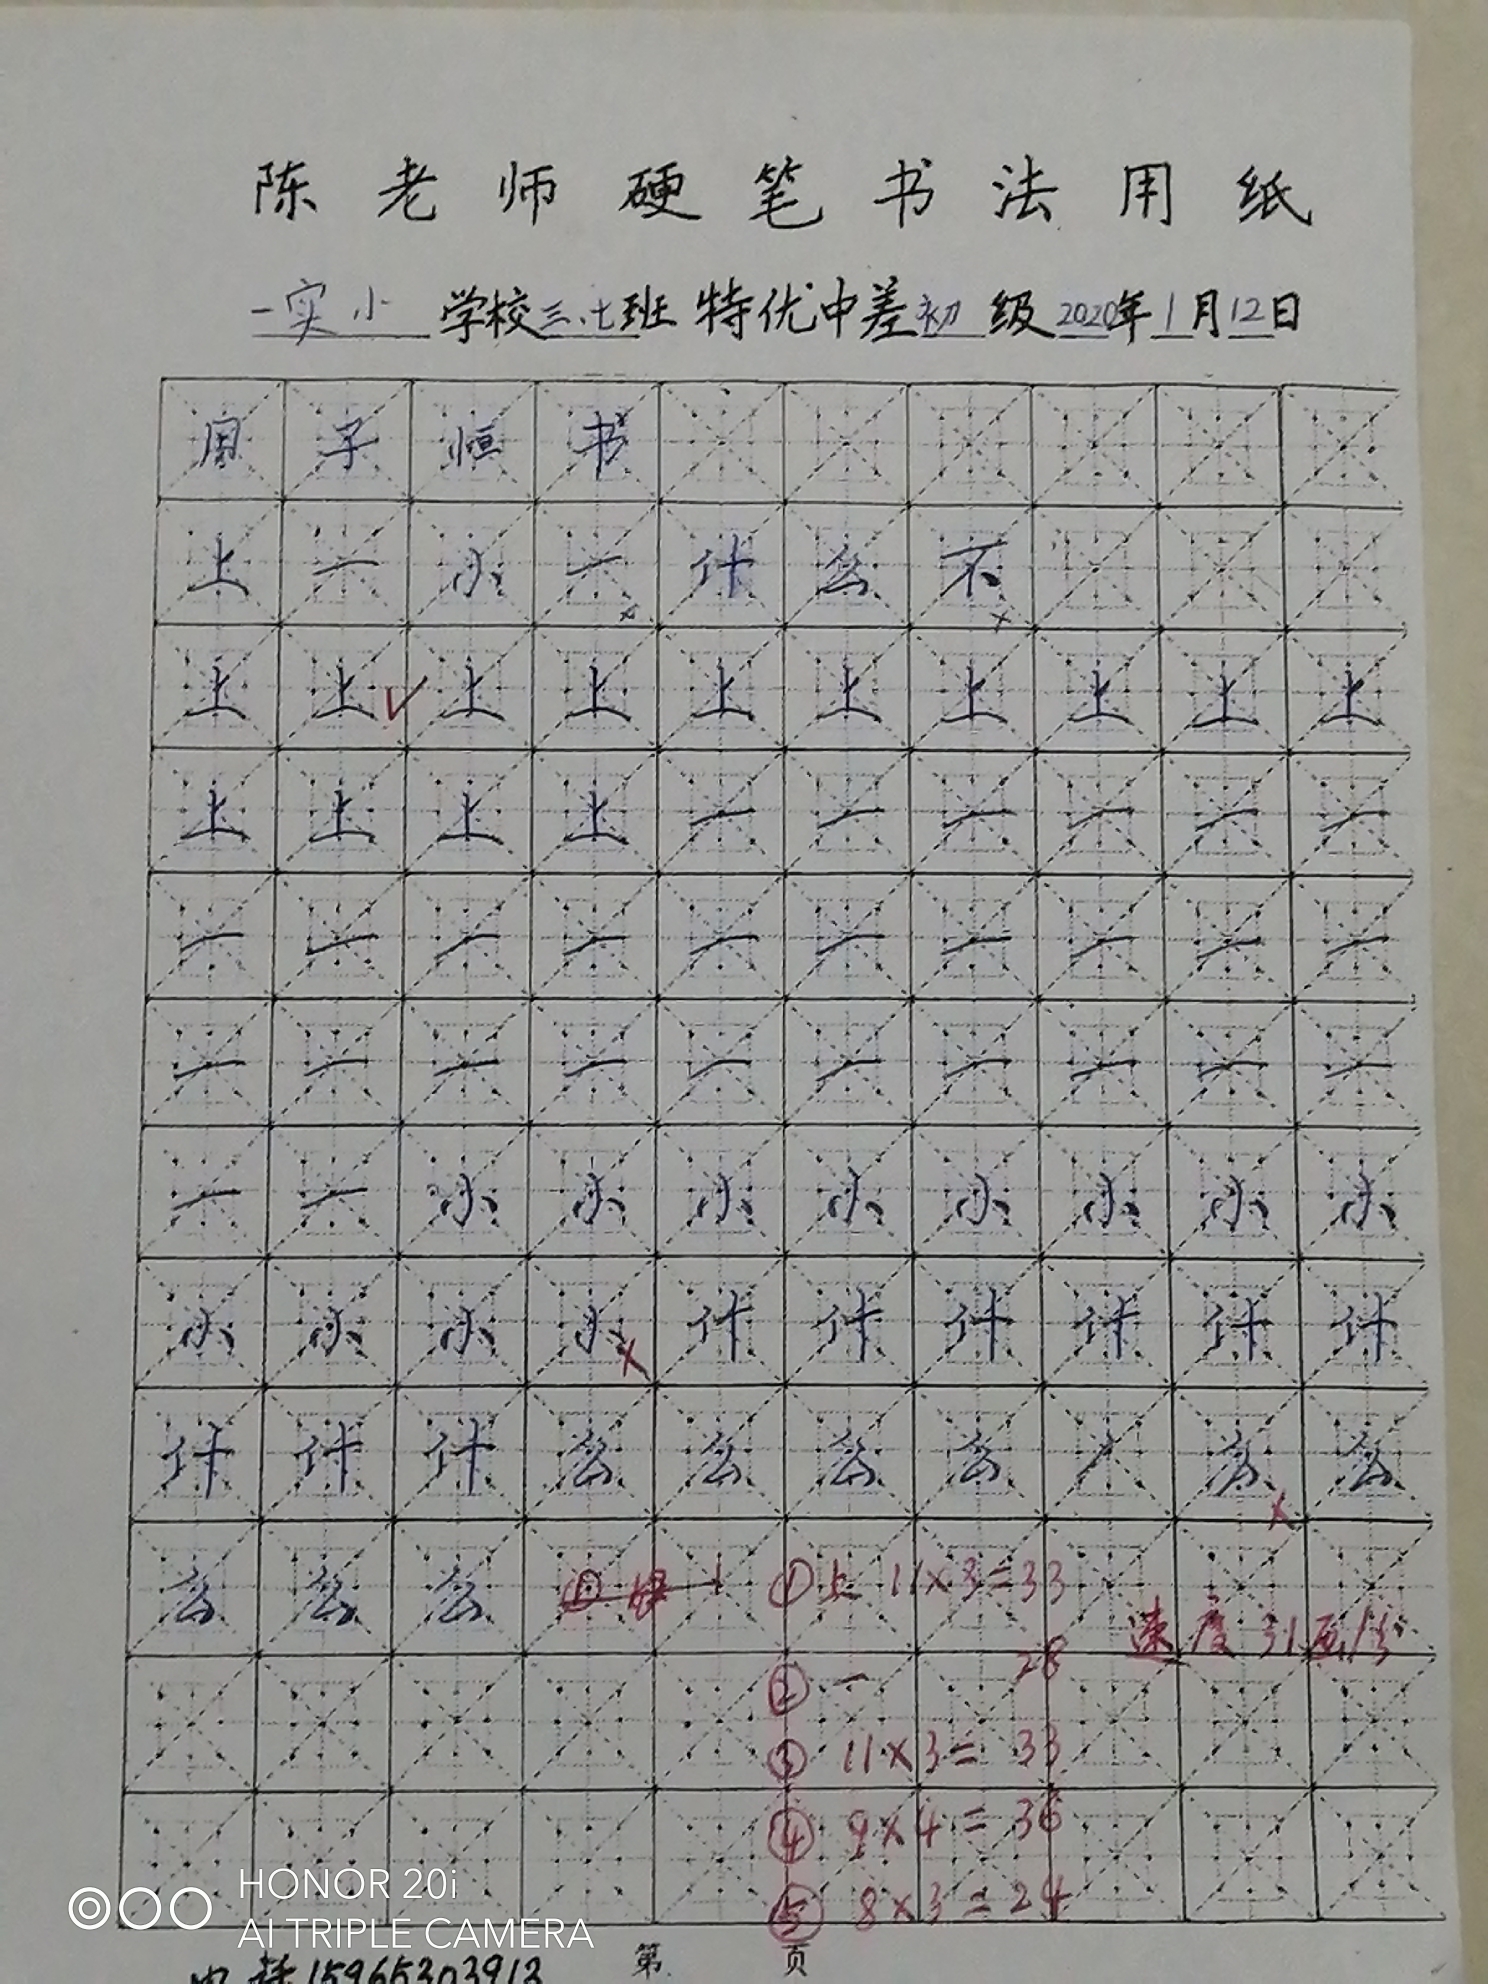 陈老师硬笔书法用纸
一实小学校三.七班特优中差初级2020年1月12日
周子恒书
上一小一什么不
上上上上上上上上上上
上上上上一一一一一一
一一一一一一一一一一
一一一一一一一一一一
一一小小小小小小小小
小小小小什什什什什什
什什什么么么么丿么么
么么么 ①上 11×3=33
速度31画/分
② 一 28
③ 11×3=33
④ 9×4=36
⑤ 8×3=24
HONOR 20i
AI TRIPLE CAMERA
第 页
电话15965303913